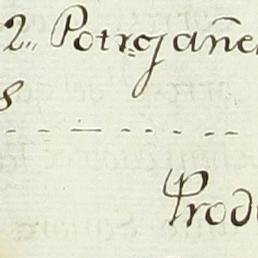 2,, Potro, añe
8
Prod